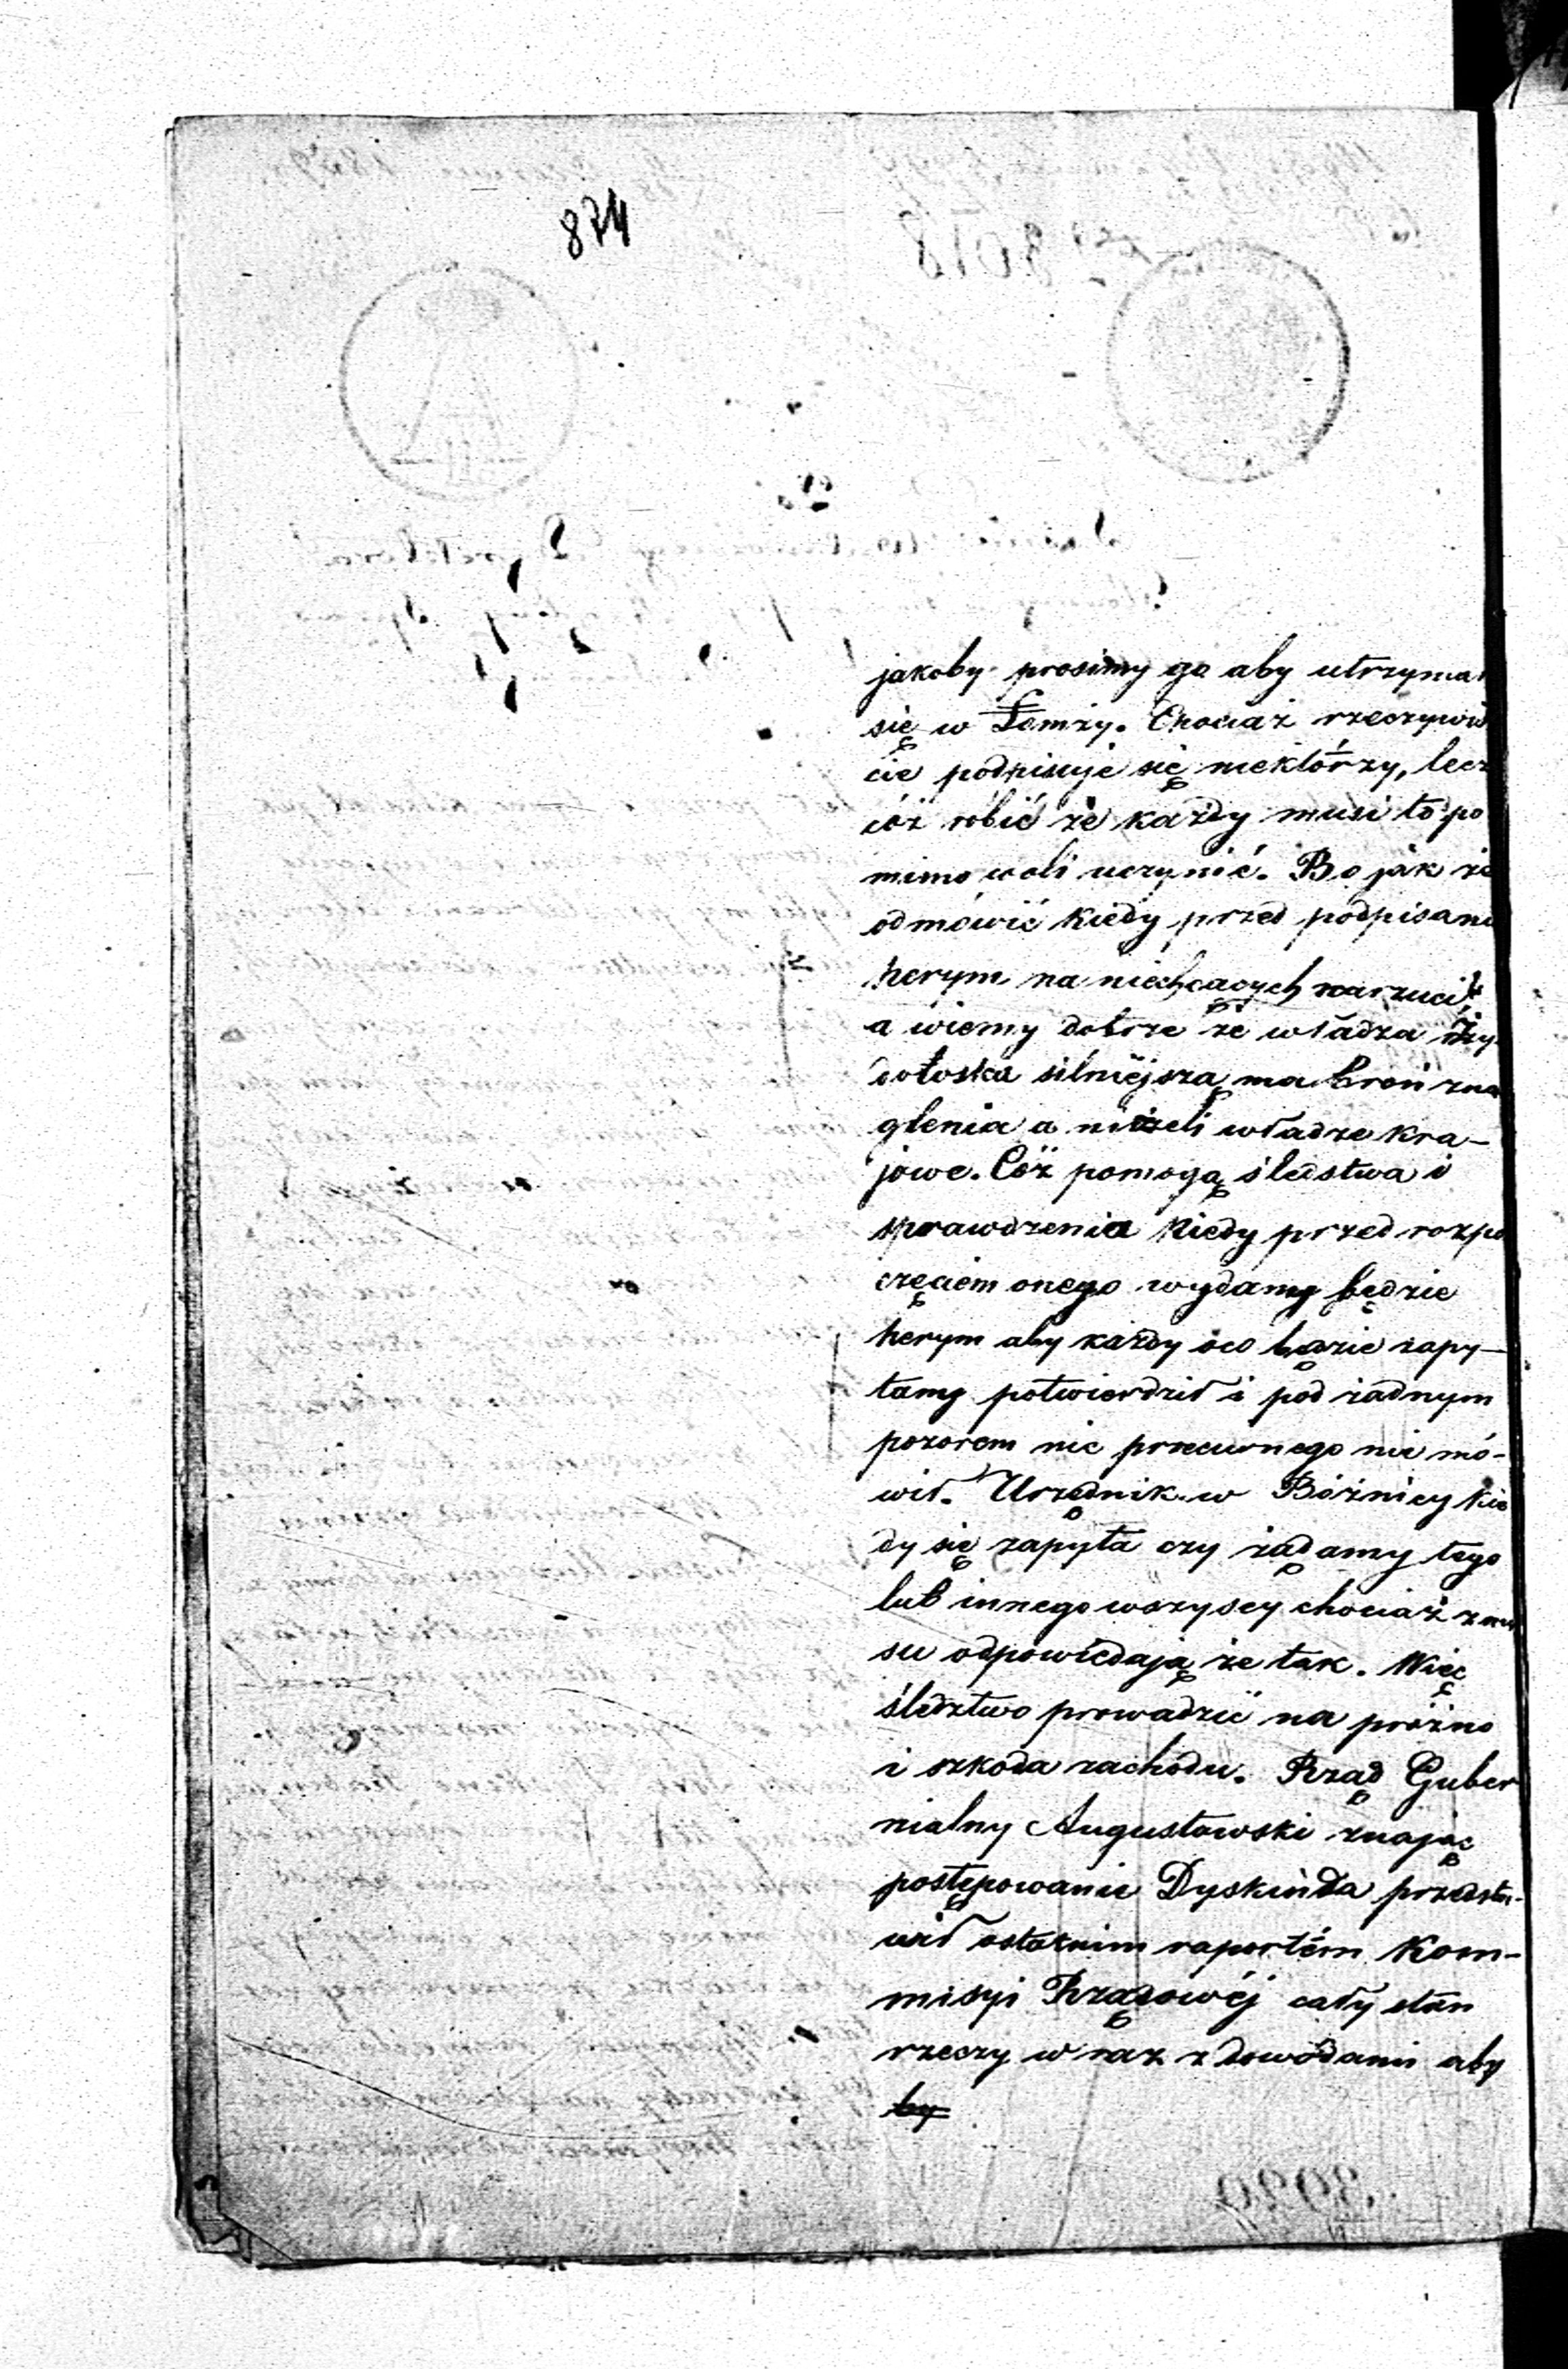 874
jakoby prosimy go aby utrzymał
się w Łomży. Chociaż rzeczywiś
cie podpisuje się niektórzy, lecz
cóż robić że każdy musi to po
mimo woli uczynić. Bo jak że
odmówić kiedy przed podpisami
herym na niechcących narzucił
a wiemy dobrze że władza Ży
dowska silniejszą ma broń zna
glenia a niżeli władze kra-
jowe. Cóż pomogą śledstwa i
sprawdzenia kiedy przed rozpo
częciem onego wydany będzie
herym aby każdy oco będzie zapy-
tany potwierdził i pod żadnym
pozorem nic przeciwnego nie mó-
wił. Urzędnik w Bóżnicy kie
dy się zapyta czy żądamy tego
lub innego wszyscy chociaż zmu
su odpowiedają że tak. Więc
śledztwo prowadzić na próżno
i szkoda zachodu. Rząd Guber
nialny Augustowski znając
postępowanie Dyskinda przedsta-
wił ostatnim raportém Kom-
misyi Rządowéj cały stan
rzeczy w raz z dowodami aby
by